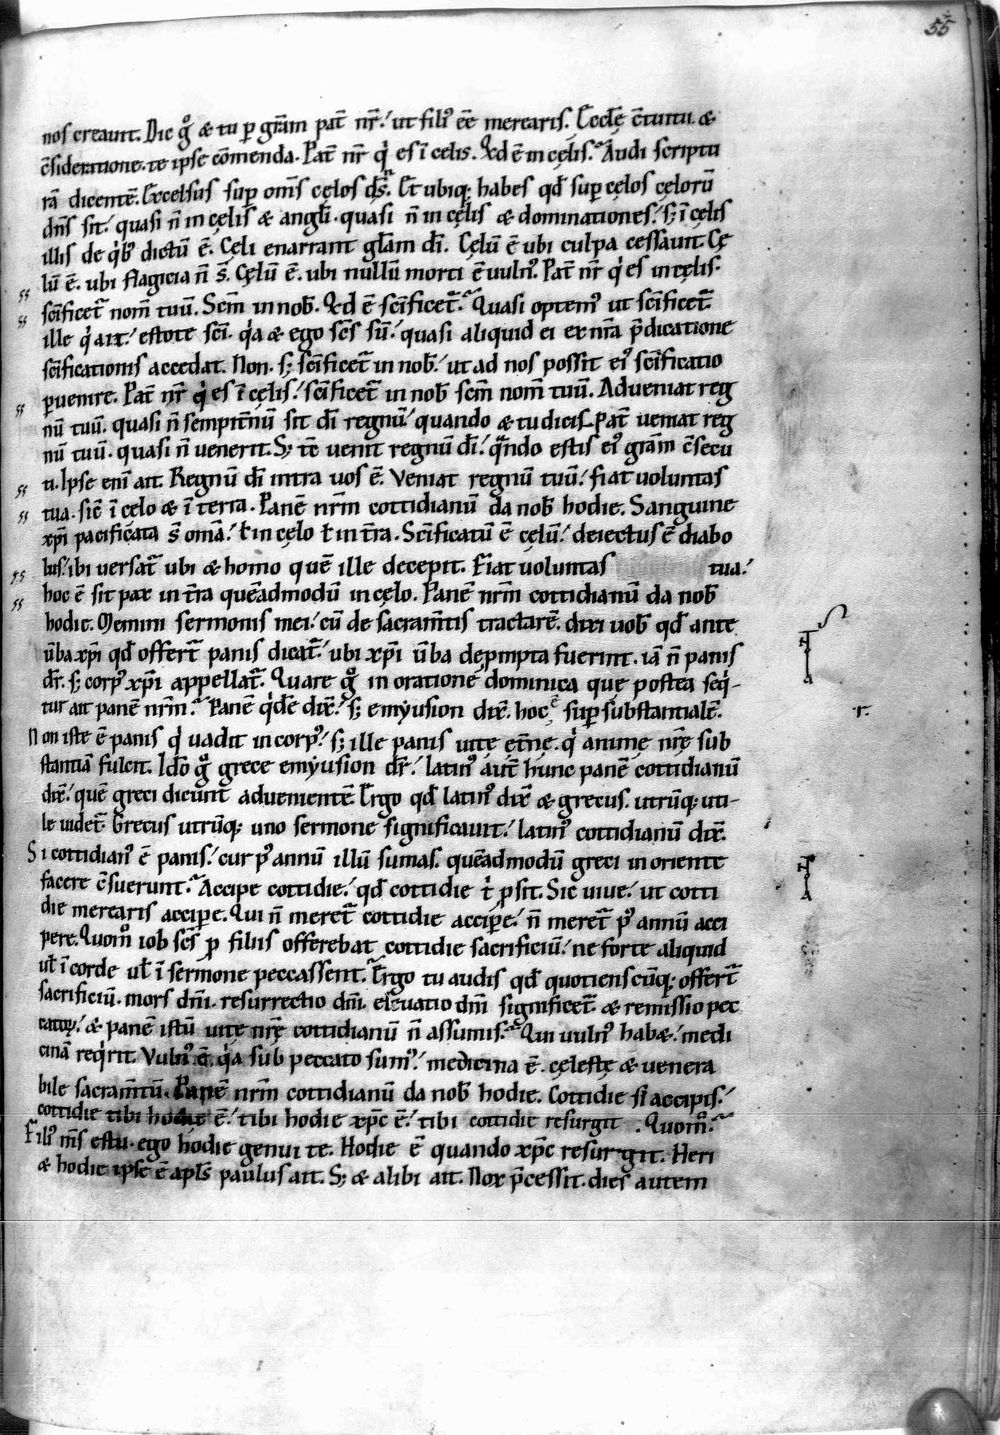 55
nos creauit. Dic g̊ & tu p gr̄am pat̄ nr̄. ut fili᾽ eē merearis. Eccl̄ę c̄tuitu. &
c̄sideratione. te ipse cōmenda. Pat̄ nr̄ q̇ es ī celis. Qd ē in cęlis. Audi scriptu
rā dicentē. Excelsus sup̄ om̄s cęlos ds̄. Et ubiq; habes qd̄ sup̄ cęlos cęlorū
dn̄s sit. quasi n̄ in cęlis & angl̄i. quasi n̄ in cęlis & dominationes. s; ī cęlis
illis de q̇b᾽ dictū ē. Cęli enarrant gl̄am dī. Cęlū ē ubi culpa cessauit. Cę
lū ē. ubi flagicia n̄ s̄. Cęlū ē. ubi nullū morti ē uuln᾽. Pat̄ nr̄ q̇ es in cęlis.
sc̄ificet᷑ nom̄ tuū. Scm̄ in nob̄. Qd ē sc̄ificet᷑. Quasi optem᾽ ut sc̄ificet᷑
ille q̇ ait. estote sc̄i. q̇a & ego sc̄s sū. quasi aliquid ei ex nr̄a p̄dicatione
sc̄ificationis accedat. Non. s; sc̄ificet᷑ in nob̄. ut ad nos possit ei᾽ sc̄ificatio
puenire. Pat̄ nr̄ q̇ es ī cęlis. sc̄ificet᷑ in nob̄ scm̄ nom̄ tuū. Adueniat reg
nū tuū. quasi n̄ sempit̄nū sit dī regnū. quando & tu dicis. Pat̄ ueniat reg
nū tuū. quasi n̄ uenerit. S; t̄c uenit regnū dī. quando estis ei᾽ gr̄am c̄secu
ti. Ipse enī ait. Regnū dī intra uos ē. Veniat regnū tuū. fiat uoluntas
tua. sic̄ ī celo & ī terra. Panē nr̄m cottidianū da nob̄ hodie. Sanguine
xp̄i pacificata s̄ om̄a. ł in cęlo ł in t̄ra. Sc̄ificatū ē cęlū. deiectus ē diabo
lus. ibi uersat᷑ ubi & homo quē ille decepit. Fiat uoluntas tua.
hoc ē sit pax in t̄ra quēadmodū in cęlo. Panē nr̄m cottidianū da nob̄
hodie. Memini sermonis mei. cū de sacram̄tis tractarē. dixi uob̄ qd̄ ante
ūba xp̄i qd̄ offert᷑ panis dicat᷑. ubi xp̄i ūba deprompta fuerint. iā n̄ panis
dr̄. s; corp᾽ xp̄i appellat᷑. Quare g̊ in oratione dominica que postea seq̇-
tur ait panē nr̄m. Panē q̇dē dix̄. s; emyusion dix̄. hoc ē sup̄substantialē.
Non iste ē panis q̇ uadit in corp᾽. s; ille panis uitę et̄nę. q̇ animę nr̄ę sub
stantiā fulcit. Id̄o g̊ grece emyusion dr̄. latin᾽ aut̄ hunc panē cottidianū
dix̄. quē greci dicunt aduenientē. Ergo qd̄ latin᾽ dix̄ & grecus. utrūq; uti-
le uidet᷑. Grecus utrūq; uno sermone significauit. latin᾽ cottidianū dix̄.
Si cottidian᾽ ē panis. cur p᾽ annū illū sumas. quēadmodū greci in oriente
facere c̄suerunt. Accipe cottidie. qd̄ cottidie t̄ prosit. Sic uiue. ut cotti
die merearis accipe. Qui n̄ meret᷑ cottidie accipe. n̄ meret᷑ p᾽ annū acci
pere. Quom᾽ iob sc̄s p filiis offerebat cottidie sacrificiū. ne forte aliquid
ul̄ ī corde ul̄ ī sermone peccassent. Ergo tu audis qd̄ quotienscūq; offert᷑
sacrificiū. mors dn̄i. resurrectio dn̄i. eleuatio dn̄i significet᷑ & remissio pec
catoꝝ. & panē istū uitę nr̄ę cottidianū n̄ assumis. Qui uuln᾽ hab&. medi
cinā req̇rit. Vuln᾽ ē. q̇a sub peccato sum᾽. medicina ē. cęlestę & uenera
bile sacram̄tū. Panē nr̄m cottidianū da nob̄ hodie. Cottidie si accipis.
cottidie tibi hodie ē. tibi hodie xp̄c ē. tibi cottidie resurgit. Quom᾽.
Fili᾽ m̄s es tu. ego hodie genui te. Hodie ē quando xp̄c resurgit. Heri
& hodie ipse ē apl̄s paulus ait. S; & alibi ait. Nox p̄cessit. dies autem